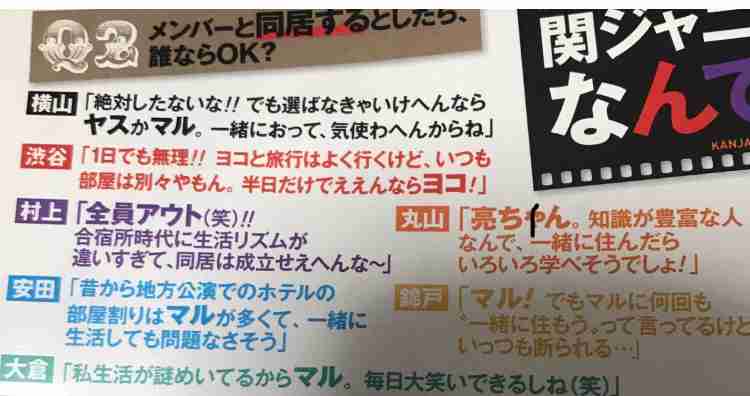 Q2 メンバーと同居するとしたら、
誰ならOK?
関ジャニ
なんで
KANJA
横山「絶対したないな!! でも選ばなきゃいけへんなら
ヤスかマル。一緒におって、気使わへんからね」
渋谷「1日でも無理!! ヨコと旅行はよく行くけど、いつも
部屋は別々やもん。半日だけでええんならヨコ!」
村上「全員アウト(笑)!!
合宿所時代に生活リズムが
違いすぎて、同居は成立せえへんな〜」
安田「昔から地方公演でのホテルの
部屋割りはマルが多くて、一緒に
生活しても問題なさそう」
丸山「亮ちゃん。知識が豊富な人
なんで、一緒に住んだら
いろいろ学べそうでしょ!」
錦戸「マル! でもマルに何回も
“一緒に住もう。って言ってるけど
いっつも断られる…」
大倉「私生活が謎めいてるからマル。毎日大笑いできるしね(笑)」